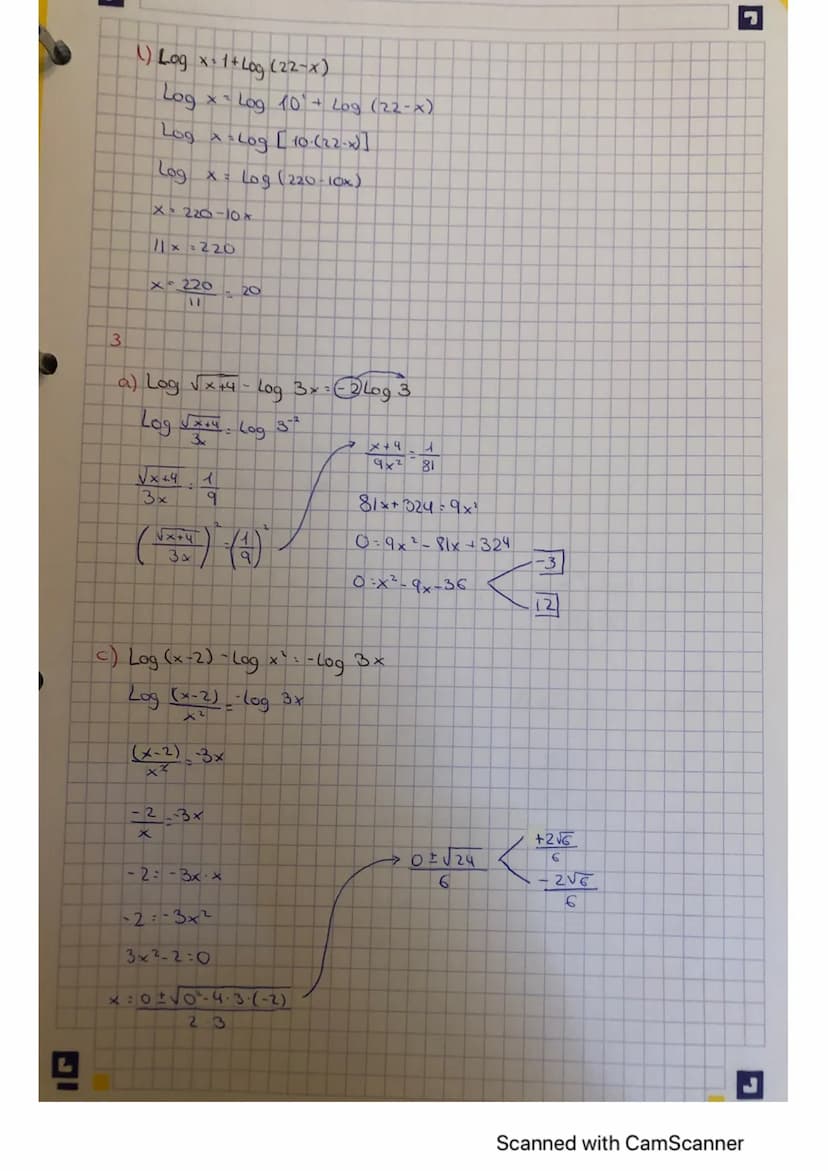 l) Log x = 1 + Log (22-x)
Log x = Log 10¹ + Log (22-x)
Log x = Log [10·(22-x)]
Log x = Log (220-10x)
x = 220-10x
11x = 220
x = 220/11 = 20
3.
a) Log √(x+4) - Log 3x = -2 Log 3
Log √(x+4)/3x = Log 3⁻²
√(x+4)/3x = 1/9
(√(x+4)/3x)² = (1/9)²
(x+4)/9x² = 1/81
81x + 324 = 9x²
0 = 9x² - 81x + 324
0 = x² - 9x - 36
-3
12
c) Log (x-2) - Log x² = -Log 3x
Log (x-2)/x² = -Log 3x
(x-2)/x² = -3x
-2/x = -3x
-2 = -3x·x
-2 = -3x²
3x² - 2 = 0
x = (0 ± √(0² - 4·3·(-2)))/(2·3)
(0 ± √24)/6
+2√6/6
-2√6/6
Scanned with CamScanner